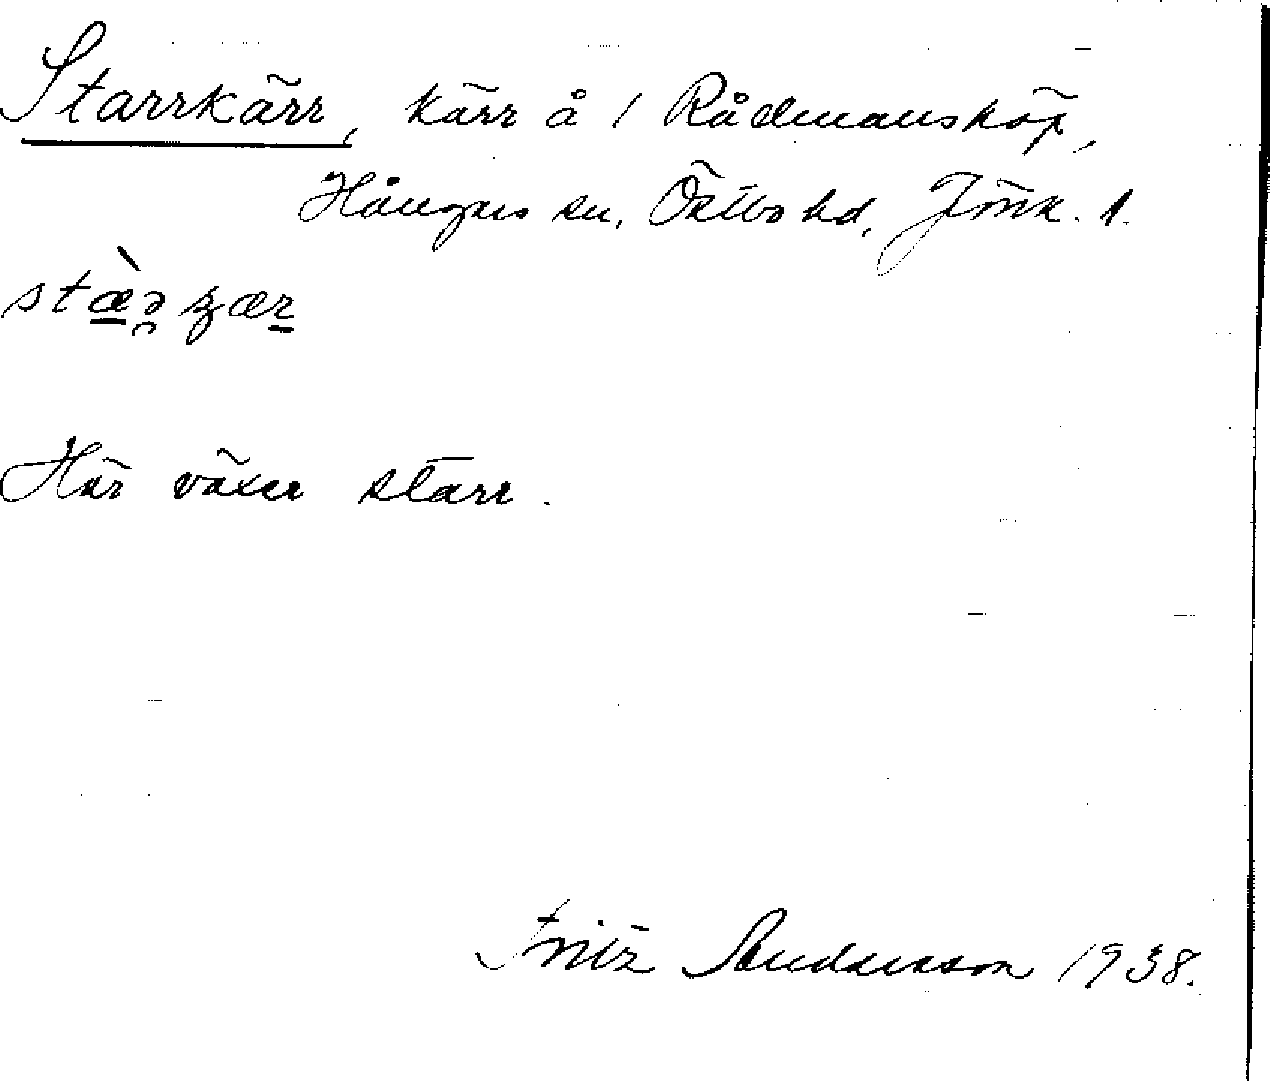 Starrkärr, kärr å / Rådmansköp,
Hånger sn, Östbo hd, Jönk. l.
Här växer starr.
Fritz Andersson 1938.